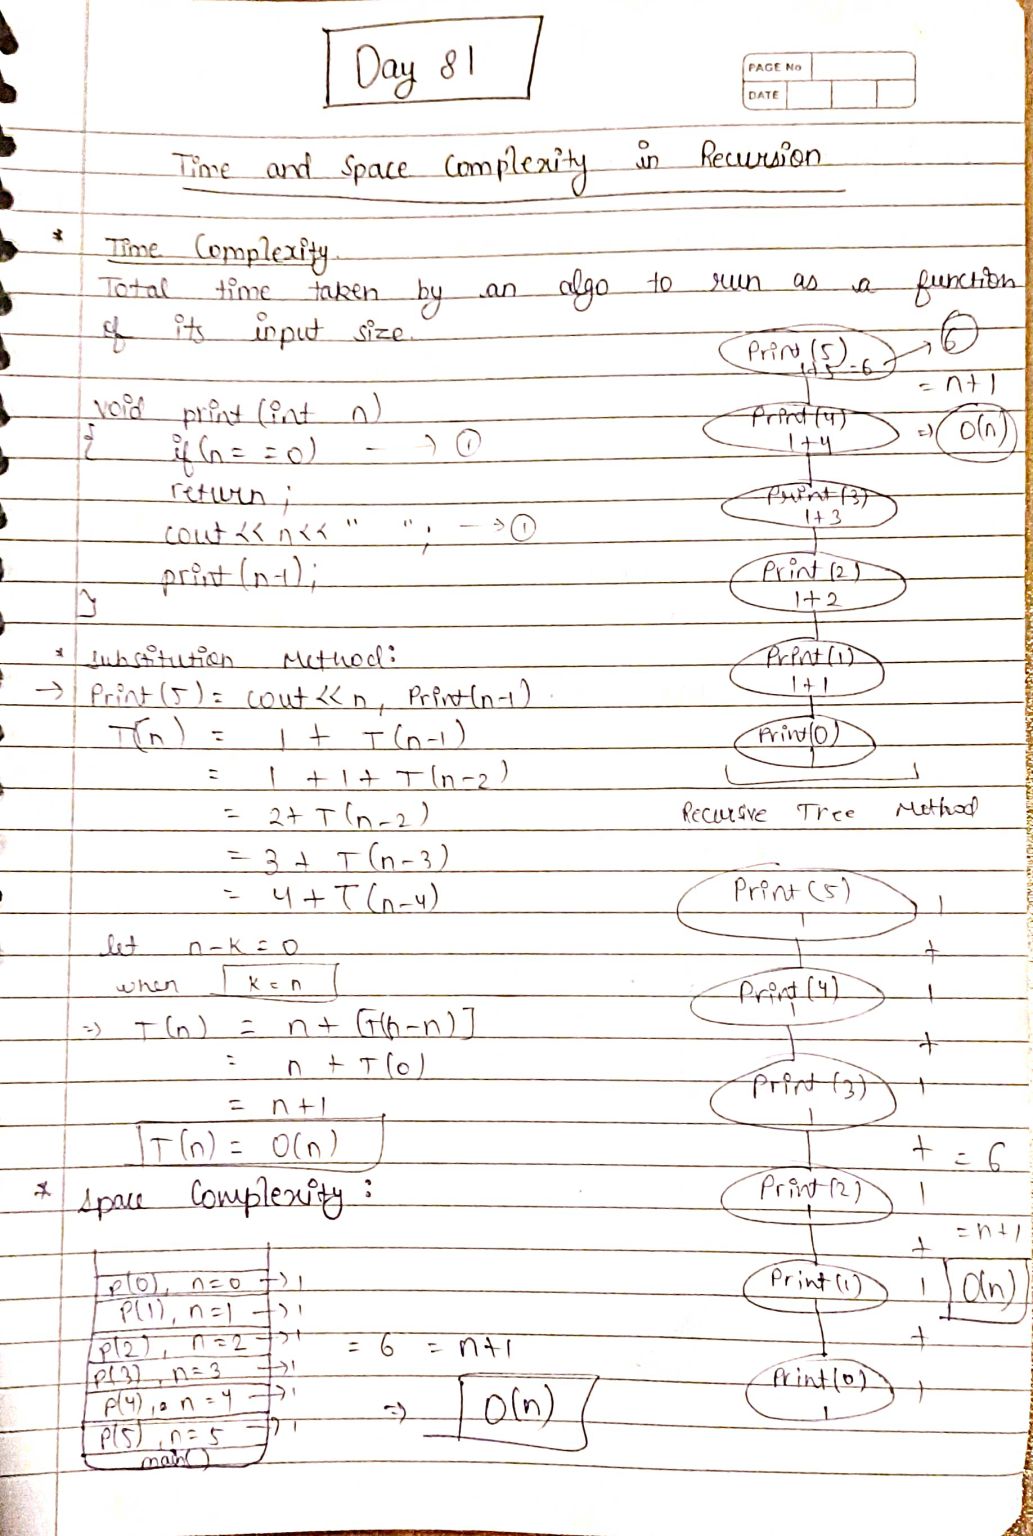 Day 81
PAGE No
DATE
Time and Space Complexity in Recursion
* Time Complexity.
Total time taken by an algo to run as a function
of its input size.
void print (int n)
{
if (n = = 0) - → 1
return ;
cout << n << " " ; - → 1
print (n-1);
}
Print (5) → 6
1+5 = 6
= n+1
Print (4) ⇒ O(n)
1+4
Print (3)
1+3
Print (2)
1+2
Print (1)
1+1
Print (0)
1
Recursive Tree Method
* Substitution Method:
→ Print (5) = cout << n, Print (n-1).
T(n) = 1 + T(n-1)
= 1 + 1 + T(n-2)
= 2 + T(n-2)
= 3 + T(n-3)
= 4 + T(n-4)
let n-k = 0
when k = n
⇒ T(n) = n + [T(n-n)]
= n + T(0)
= n+1
T(n) = O(n)
Print (5) 1
1 +
Print (4) 1
1 +
Print (3) 1
1 + = 6
Print (2) 1
1 + = n+1
Print (1) 1 O(n)
+
Print (0) 1
1
* Space Complexity :
P(0), n=0 → 1
P(1), n=1 → 1
P(2), n=2 → 1 = 6 = n+1
P(3), n=3 → 1
P(4), n=4 → 1 ⇒ O(n)
P(5), n=5 → 1
main()